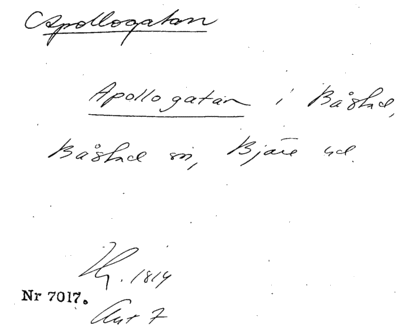 Apollogatan
Apollogatan i Båstad,
Båstad sn, Bjäre hd.
1814
Nr 7017.
Ant 7